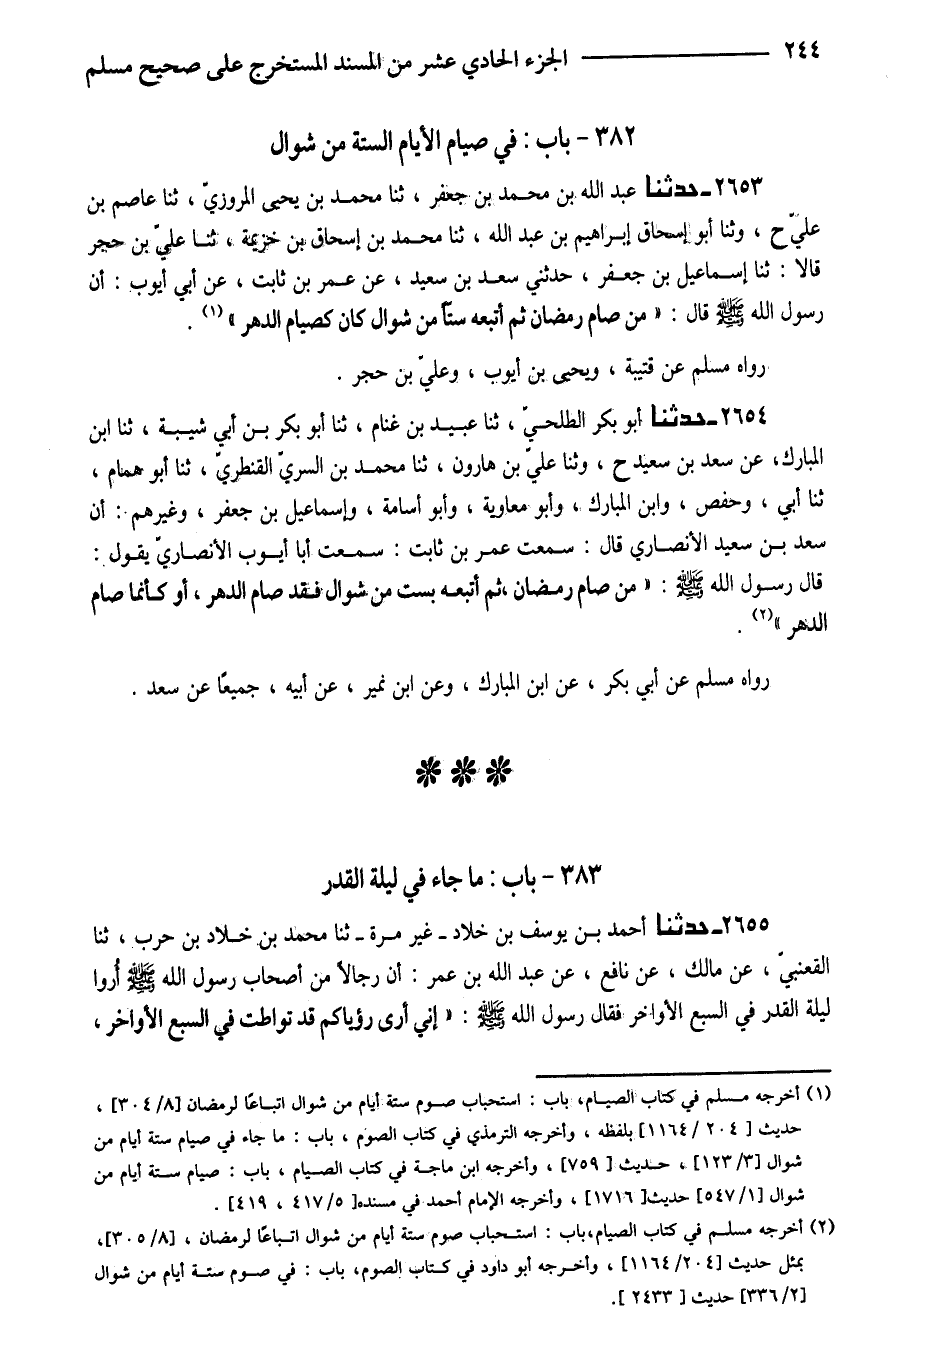 ٢٤٤ ــــــــــــــ الجزء الحادي عشر من المسند المستخرج على صحيح مسلم
٣٨٢ - باب : في صيام الأيام الستة من شوال
٢٦٥٣ـ حدثنا عبد الله بن محمد بن جعفر ، ثنا محمد بن يحيى المروزيّ ، ثنا عاصم بن
عليّ ح ، وثنا أبو إسحاق إبراهيم بن عبد الله ، ثنا محمد بن إسحاق بن خزيمة ، ثنا عليّ بن حجر
قالا : ثنا إسماعيل بن جعفر ، حدثني سعد بن سعيد ، عن عمر بن ثابت ، عن أبي أيوب : أن
رسول الله ﷺ قال : « من صام رمضان ثم أتبعه ستًا من شوال كان كصيام الدهر »(١) .
رواه مسلم عن قتيبة ، ويحيى بن أيوب ، وعليّ بن حجر .
٢٦٥٤ـ حدثنا أبو بكر الطلحيّ ، ثنا عبيد بن غنام ، ثنا أبو بكر بن أبي شيبة ، ثنا ابن
المبارك، عن سعد بن سعيد ح ، وثنا عليّ بن هارون ، ثنا محمد بن السريّ القنطريّ ، ثنا أبو همام ،
ثنا أبي ، وحفص ، وابن المبارك ، وأبو معاوية ، وأبو أسامة ، وإسماعيل بن جعفر ، وغيرهم : أن
سعد بن سعيد الأنصاري قال : سمعت عمر بن ثابت : سمعت أبا أيوب الأنصاريّ يقول :
قال رسول الله ﷺ : « من صام رمضان ،ثم أتبعه بست من شوال فقد صام الدهر ، أو كأنما صام
الدهر »(٢) .
رواه مسلم عن أبي بكر ، عن ابن المبارك ، وعن ابن نمير ، عن أبيه ، جميعًا عن سعد .
٣٨٣ - باب : ما جاء في ليلة القدر
٢٦٥٥ـ حدثنا أحمد بن يوسف بن خلاد ـ غير مرة ـ ثنا محمد بن خلاد بن حرب ، ثنا
القعنبيّ ، عن مالك ، عن نافع ، عن عبد الله بن عمر : أن رجالاً من أصحاب رسول الله ﷺ أُروا
ليلة القدر في السبع الأواخر فقال رسول الله ﷺ : « إني أرى رؤياكم قد تواطت في السبع الأواخر ،
(١) أخرجه مسلم في كتاب الصيام، باب : استحباب صوم ستة أيام من شوال اتباعًا لرمضان [٣٠٤/٨] ،
حديث [ ٢٠٤ /١١٦٤] بلفظه ، وأخرجه الترمذي في كتاب الصوم ، باب : ما جاء في صيام ستة أيام من
شوال [١٢٣/٣] ، حديث [ ٧٥٩] ، وأخرجه ابن ماجة في كتاب الصيام ، باب : صيام ستة أيام من
شوال [٥٤٧/١] حديث[ ١٧١٦] ، وأخرجه الإمام أحمد في مسنده[ ٤١٧/٥ ، ٤١٩] .
(٢) أخرجه مسلم في كتاب الصيام،باب : استحباب صوم ستة أيام من شوال اتباعًا لرمضان ، [٣٠٥/٨]،
بمثل حديث [١١٦٤/٢٠٤] ، وأخرجه أبو داود في كتاب الصوم، باب : في صوم ستة أيام من شوال
[٣٣٦/٢] حديث [ ٢٤٣٣ ].